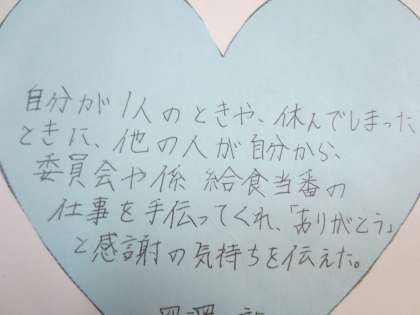 自分が1人のときや、休んでしまった
ときに、他の人が自分から、
委員会や係 給食当番の
仕事を手伝ってくれ、「ありがとう」
と感謝の気持ちを伝えた。